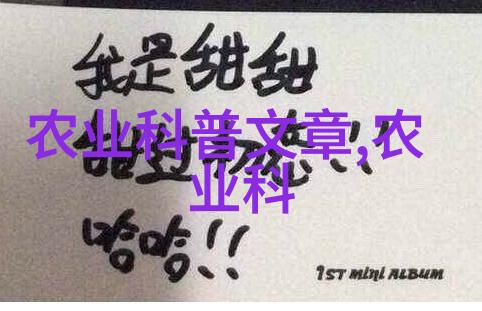 我是甜甜
农业科普文章,农
业科
哈哈!!
1ST MINI ALBUM